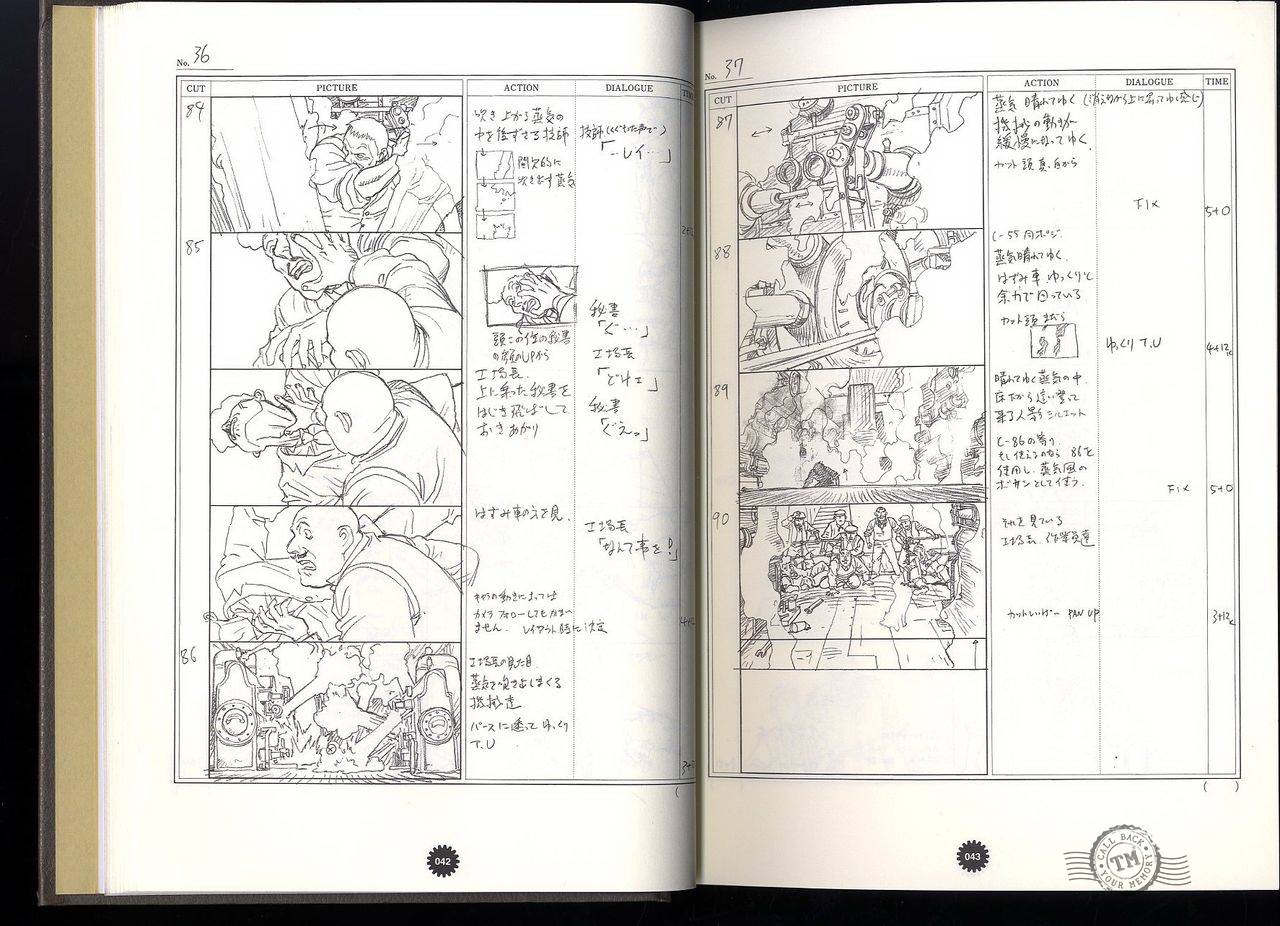 No. 36
CUT PICTURE ACTION DIALOGUE
84
吹き上がる蒸気の
中を後ずさる技師
間欠的に
吹き出す蒸気
技師
「…レイ…」
85
頭この位の秘書
の顔のUPから
工場長
上に乗った秘書を
はじき飛ばして
おきあがり
秘書
「ぐ…」
工場長
「どけェ」
秘書
「ぐえっ」
はずみ車の方を見、
工場長
「なんて事を!」
キャラの動きによっては
カメラフォローしてもかまい
ません. レイアウト時に決定
86
工場長の見た目
蒸気を吹き出しまくる
機械達
パースに添って ゆっくり
T.U
042
No. 37
CUT PICTURE ACTION DIALOGUE TIME
87
蒸気 晴れてゆく
機械の動きが
緩慢になってゆく.
カット頭 真白から
FIX
5+0
88
C-55 同ポジ.
蒸気晴れてゆく.
はずみ車 ゆっくりと
余力で回っている
カット頭
ゆっくり T.U
4+12
89
晴れてゆく蒸気の中.
床下から這い登って
来る人影シルエット
C-86の寄り
もし使えるのなら 86を
使用し. 蒸気風の
ボカシとして使う.
FIX
5+0
90
それを見ている
工場長. 作業員達
PAN UP
3+12
043
CALL BACK
TM
YOUR MEMORY